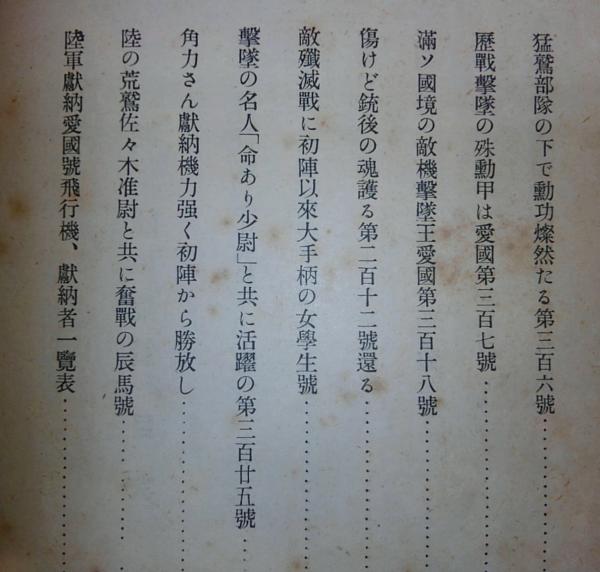 猛鷲部隊の下で勳功燦然たる第三百六號
歷戰擊墜の殊勳甲は愛國第三百七號
滿ソ國境の敵機擊墜王愛國第三百十八號
傷けど銃後の魂護る第二百十二號還る
敵殲滅戰に初陣以來大手柄の女學生號
擊墜の名人「命あり少尉」と共に活躍の第三百廿五號
角力さん獻納機力强く初陣から勝放し
陸の荒鷲佐々木准尉と共に奮戰の辰馬號
陸軍獻納愛國號飛行機、獻納者一覽表